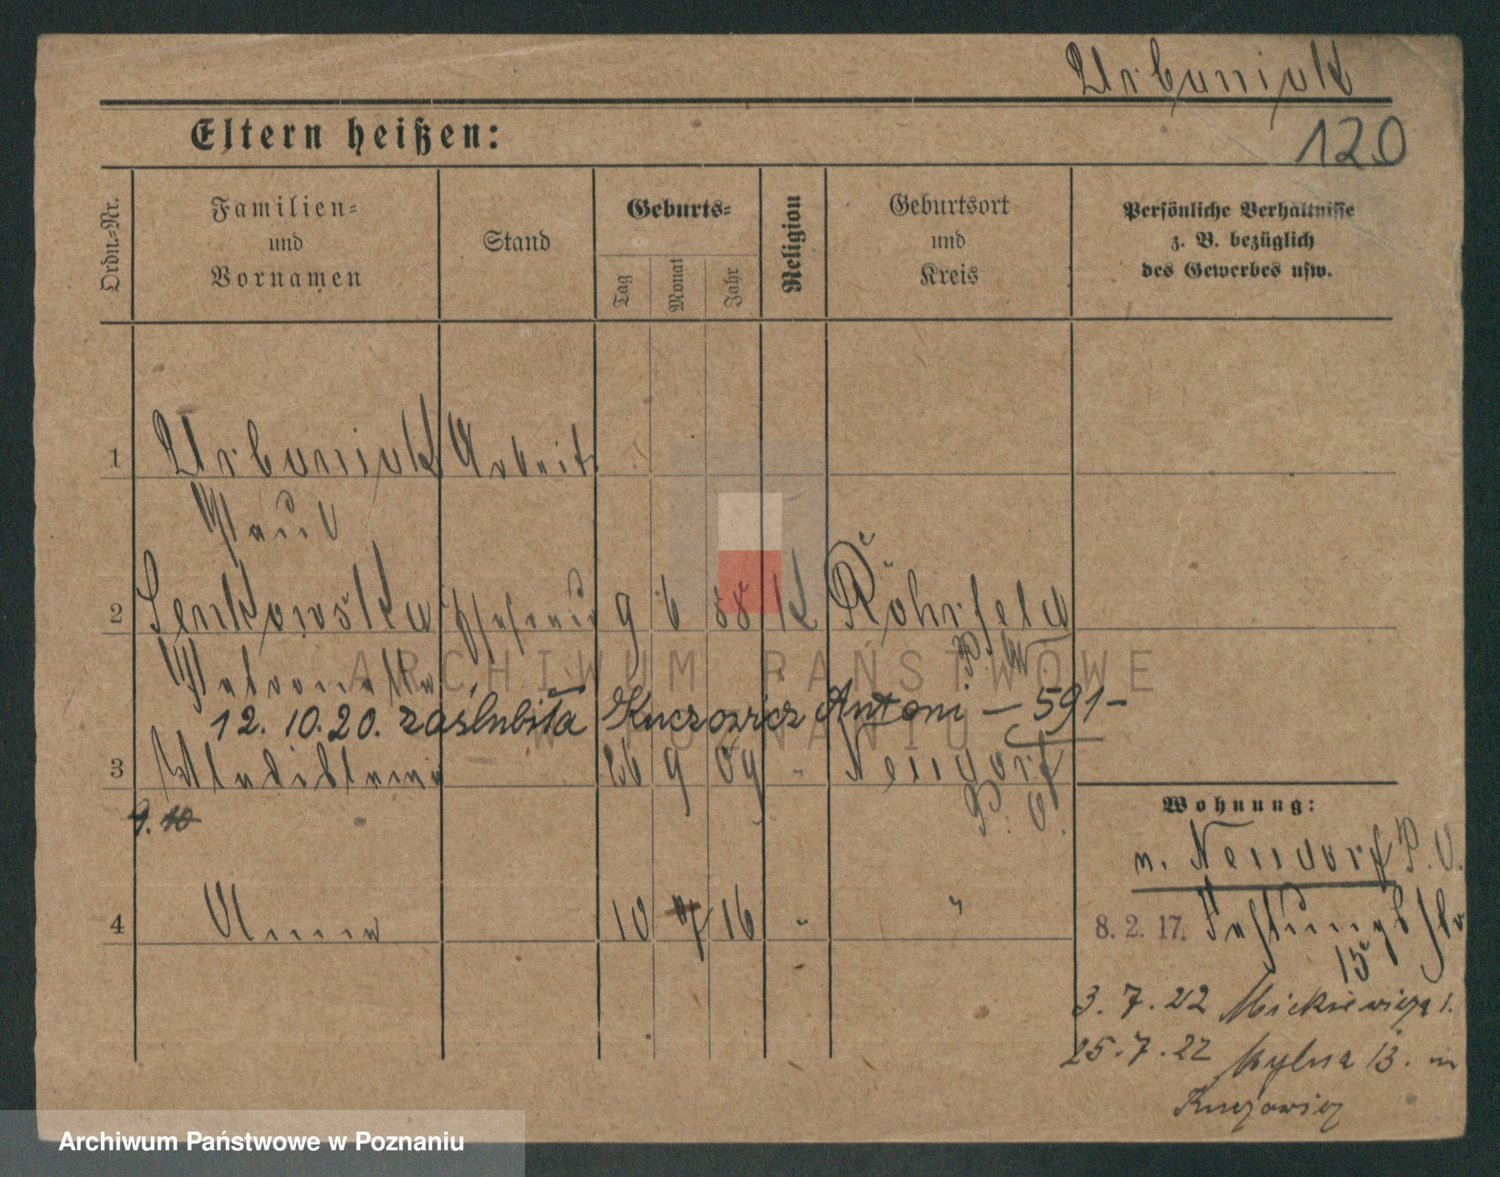 Urbaniak
120
Eltern heißen:
Ordn.-Nr.
Familien-
und
Vornamen
Stand
Geburts-
Tag
Monat
Jahr
Religion
Geburtsort
und
Kreis
Persönliche Verhältnisse
z. B. bezüglich
des Gewerbes usw.
1 Urbaniak Arbeit
Paul
2 Senkowska 9 6 88 K Röhrfeld
P. W
12.10.20. zaślubiła Kuczowicz Antoni — 591 —
3 26 9 09 " Neudorf
P. O.
9. 10
4 Anna 10 7 16 " "
Wohnung:
n. Neudorf P. O.
8. 2. 17. Festungsstr
15
3.7.22 Mickiewicza 1.
25.7.22 13. m
ARCHIWUM PAŃSTWOWE
W POZNANIU
Archiwum Państwowe w Poznaniu